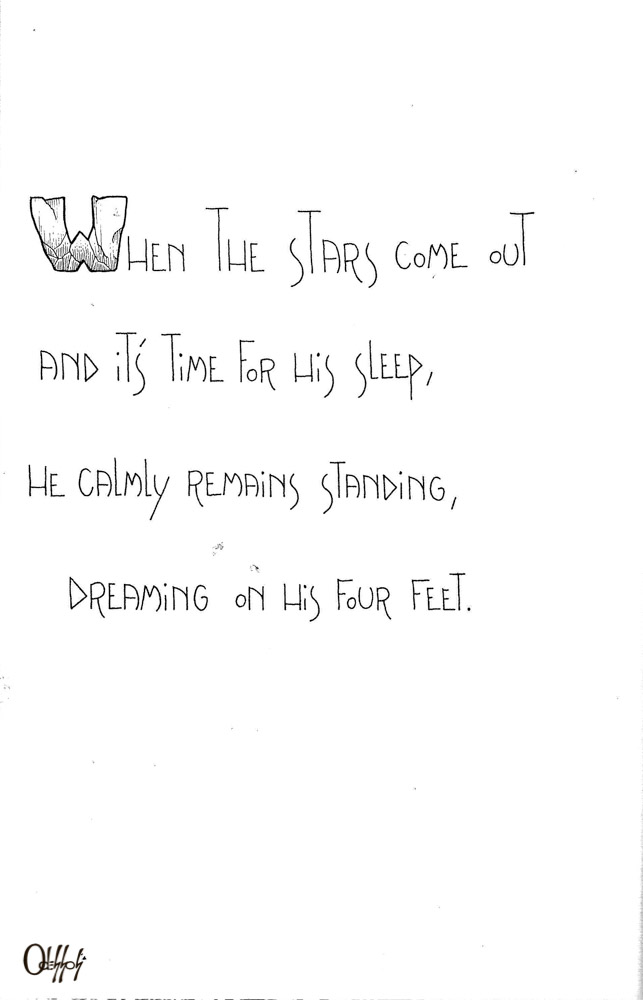 When the stars come out
and it's time for his sleep,
he calmly remains standing,
dreaming on his four feet.